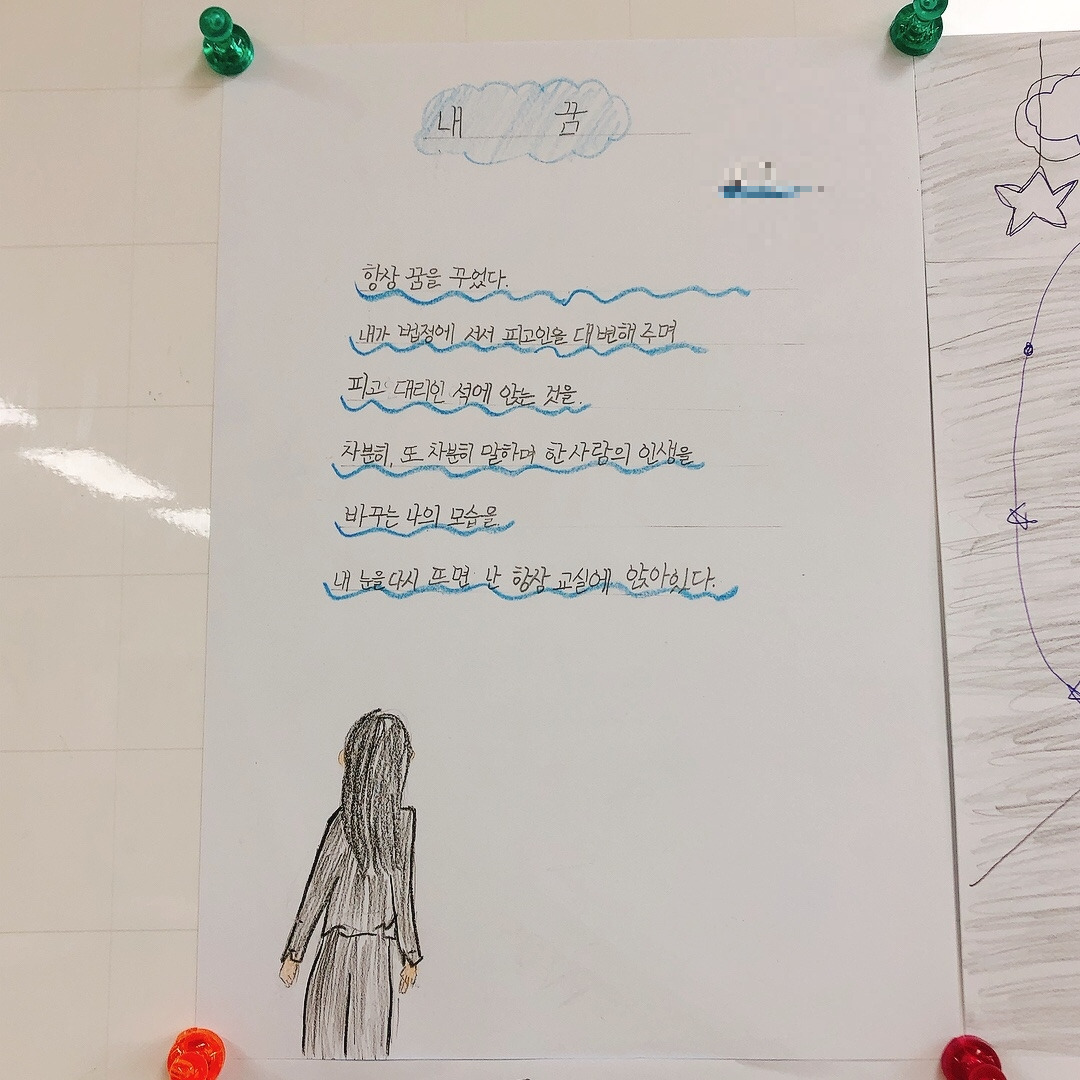 내 꿈
항상 꿈을 꾸었다.
내가 법정에 서서 피고인을 대변해 주며
피고 대리인 석에 앉는 것을.
차분히, 또 차분히 말하며 한 사람의 인생을
바꾸는 나의 모습을.
내 눈을 다시 뜨면 난 항상 교실에 앉아있다.